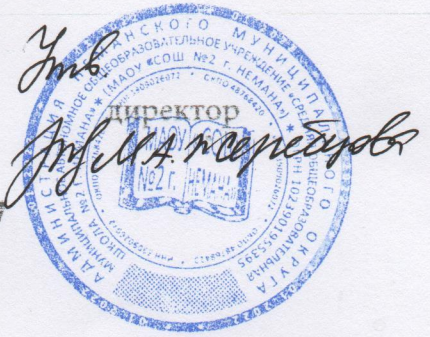 Утв.
директор
М.А. Жеребцова
АДМИНИСТРАЦИЯ НЕМАНСКОГО МУНИЦИПАЛЬНОГО ОКРУГА
МУНИЦИПАЛЬНОЕ АВТОНОМНОЕ ОБЩЕОБРАЗОВАТЕЛЬНОЕ УЧРЕЖДЕНИЕ «СРЕДНЯЯ ОБЩЕОБРАЗОВАТЕЛЬНАЯ
ШКОЛА №2 Г. НЕМАНА» * (МАОУ «СОШ №2 г. НЕМАНА») * ОГРН 1023901955395
МАОУ СОШ
№2 г. НЕМАНА